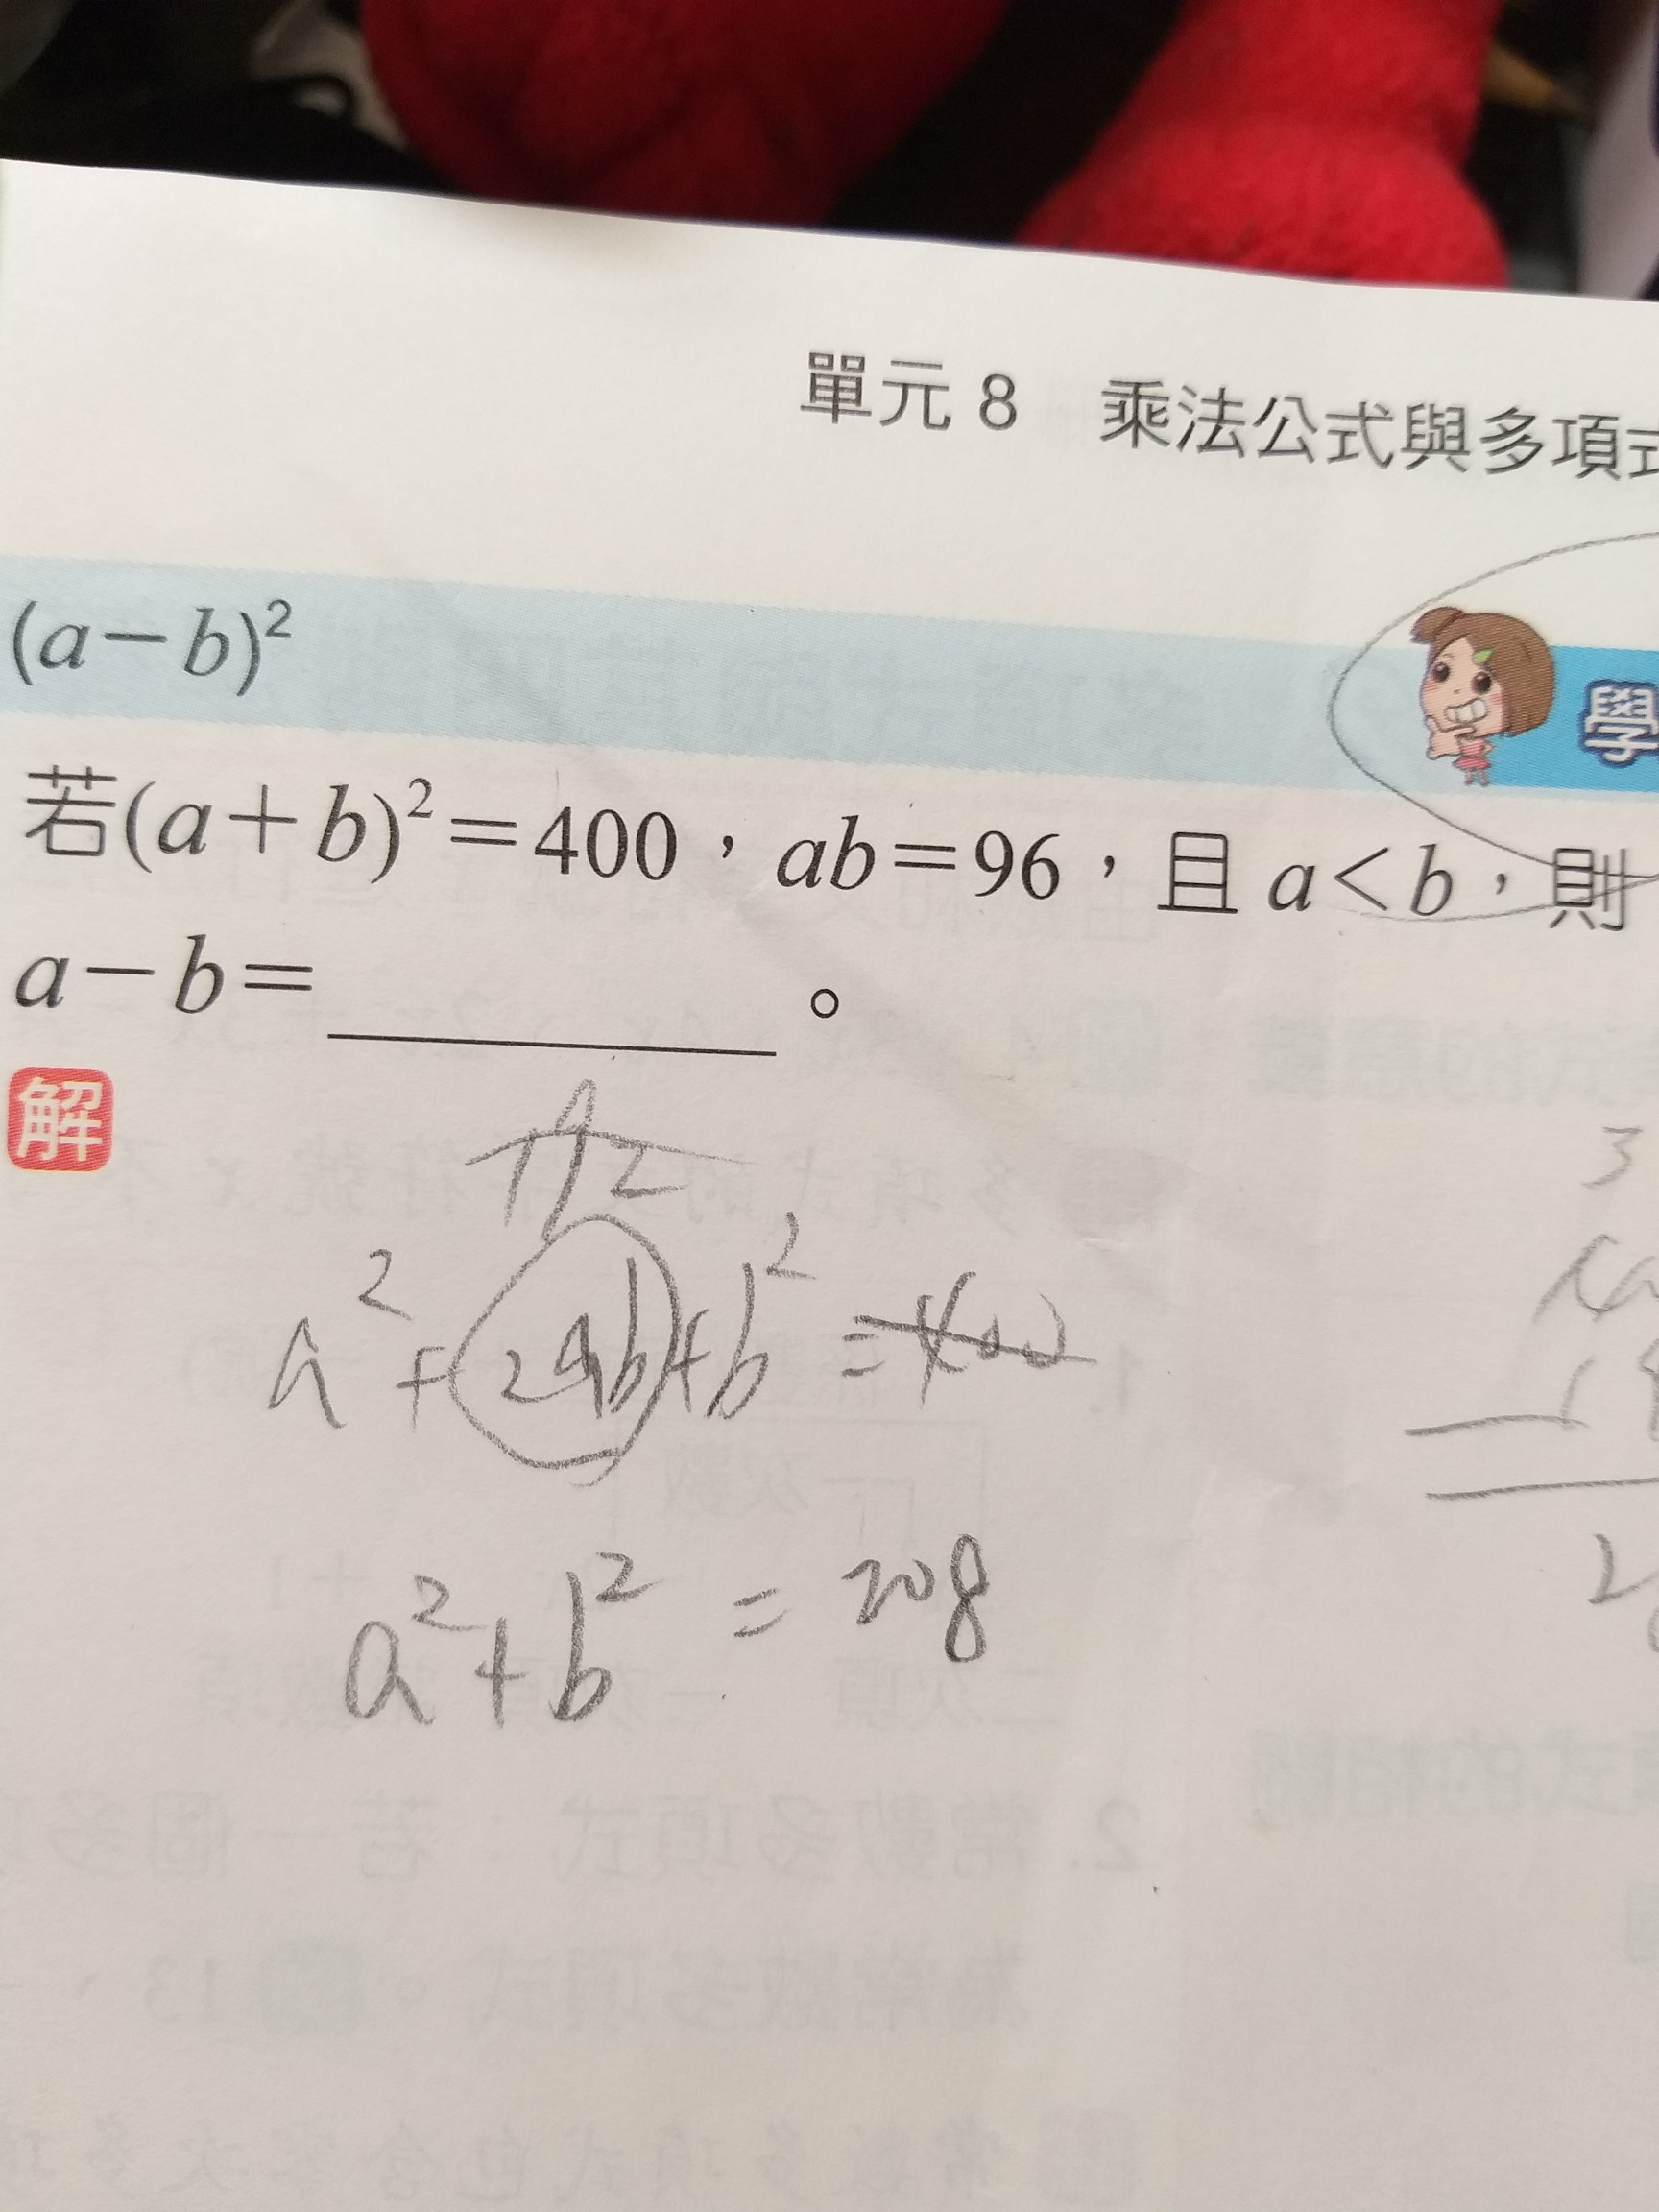 單元 8 乘法公式與多項
(a－b)²
學
若(a＋b)²＝400，ab＝96，且 a＜b，則
a－b＝＿＿＿＿＿。
解
192
a²+2ab+b²=400
a²+b²=208
3